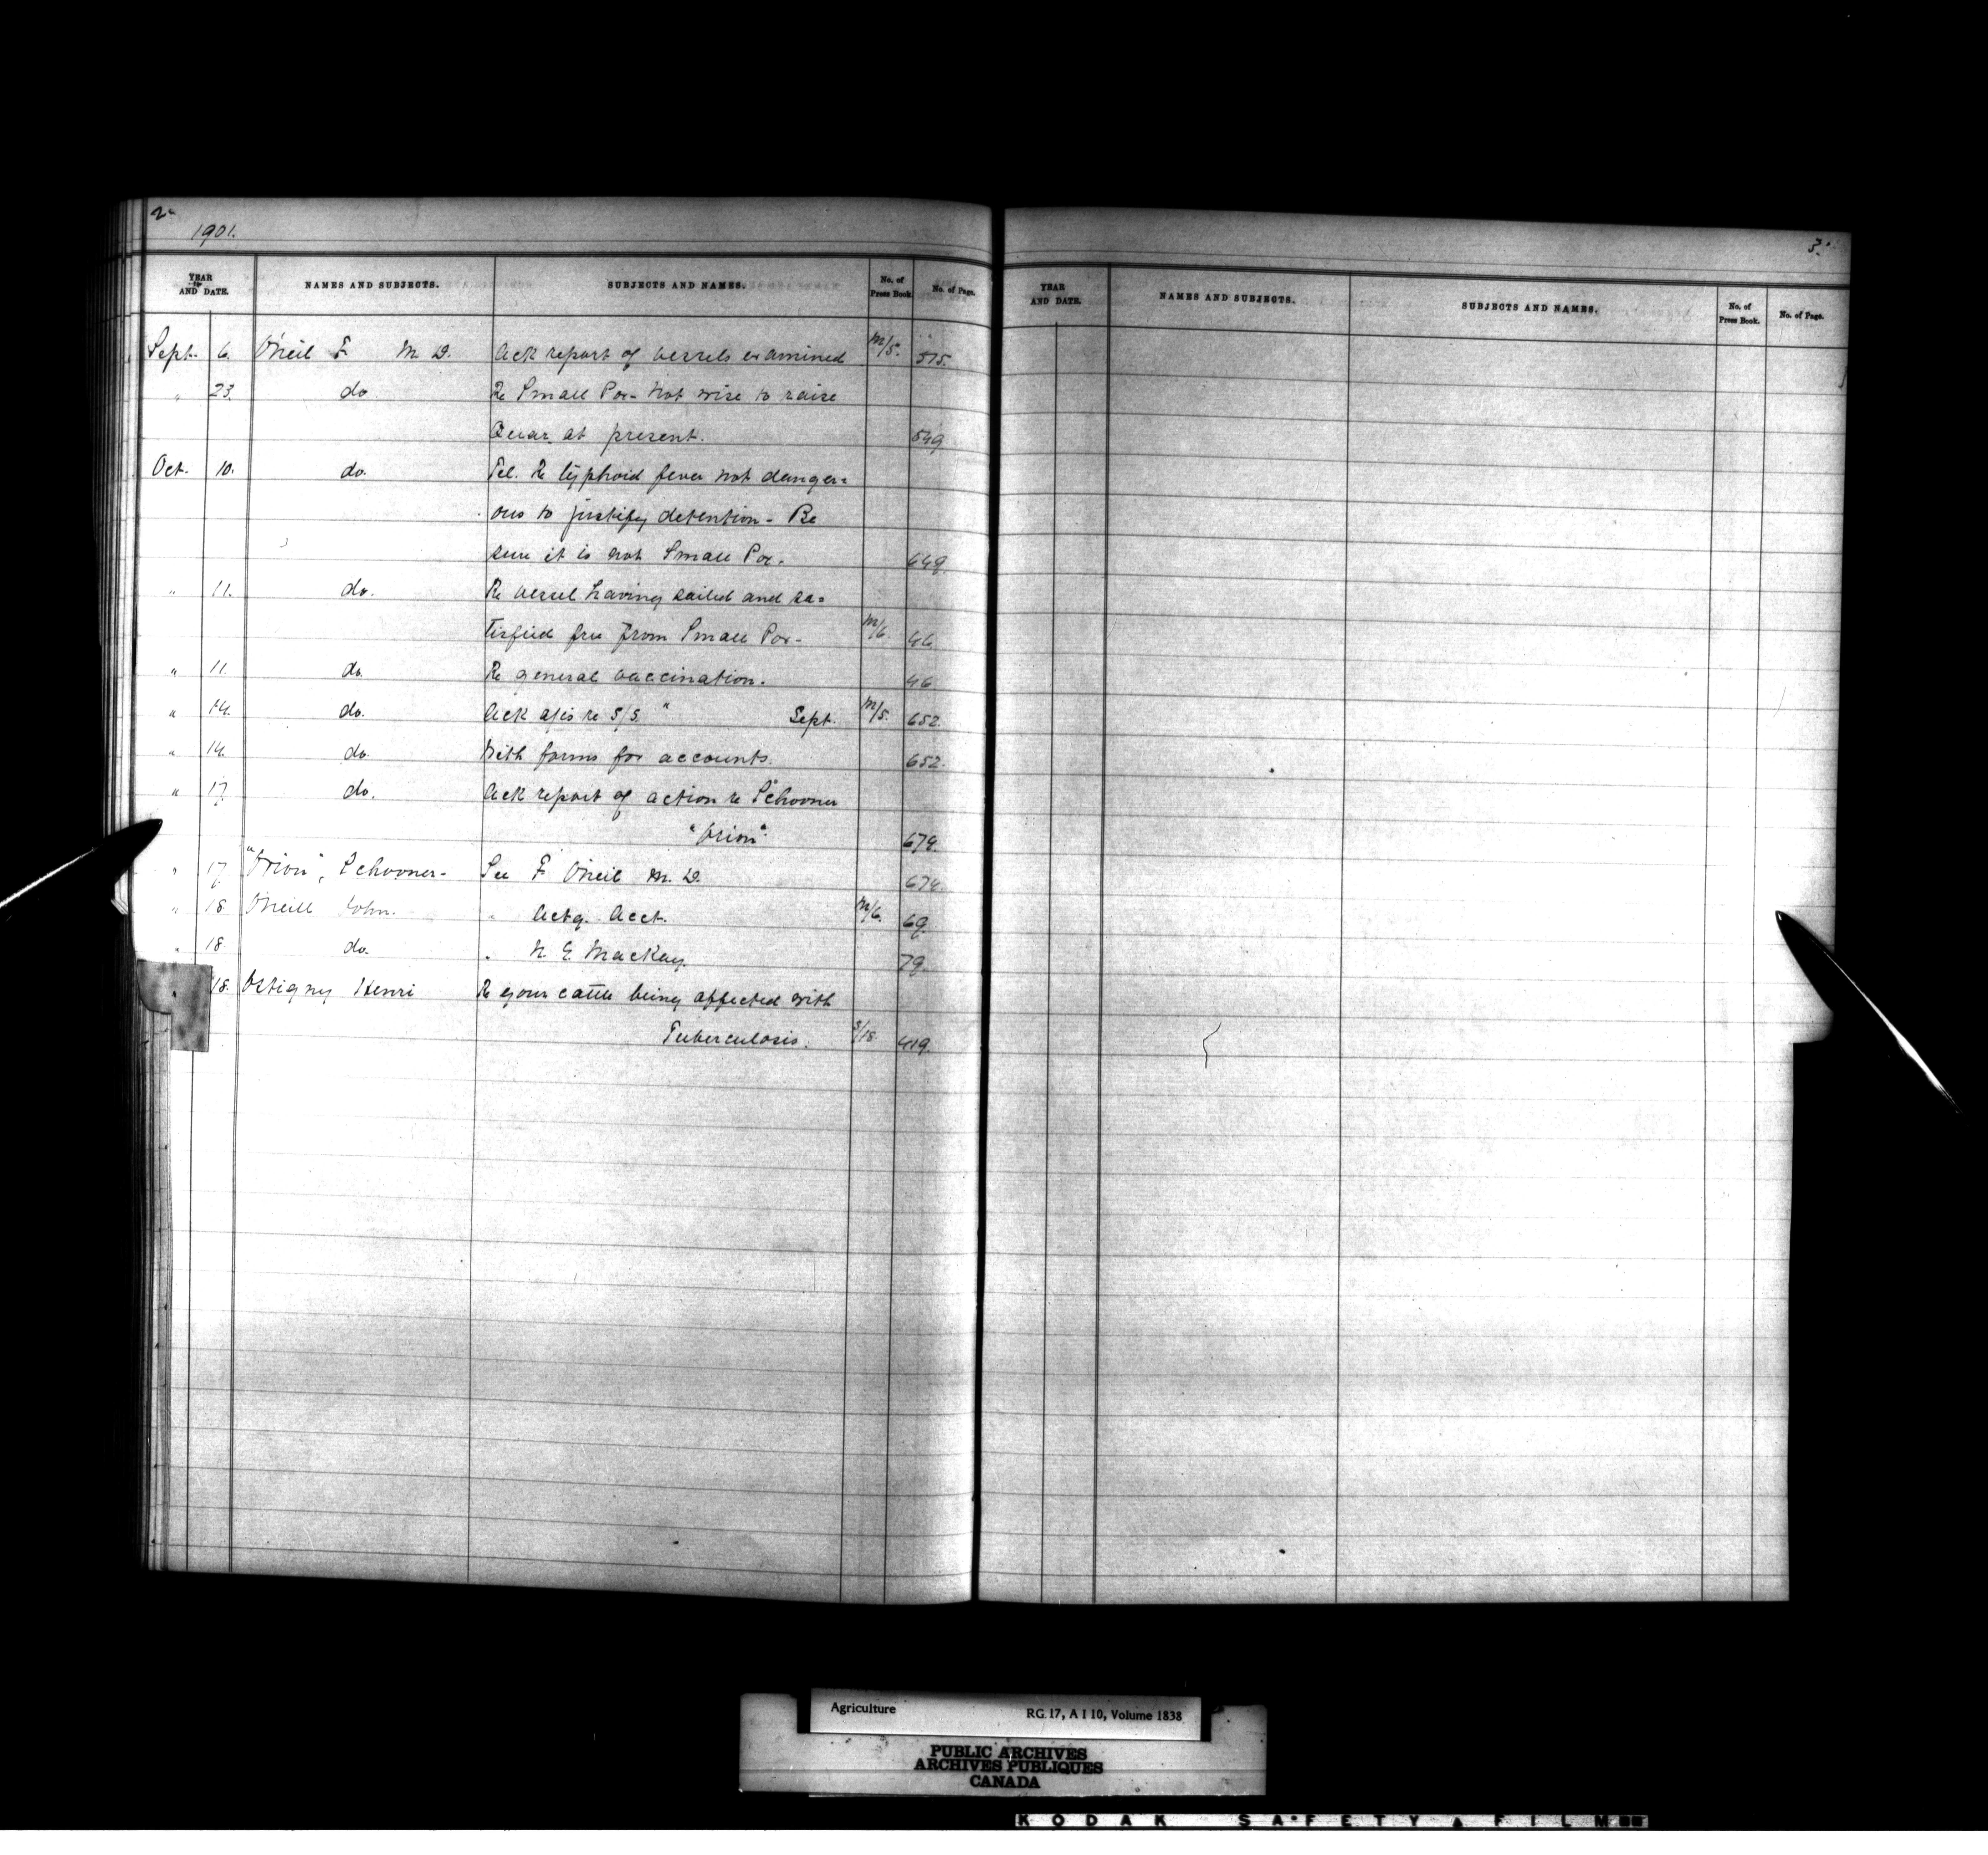 2.
1901.
YEAR AND DATE. NAMES AND SUBJECTS. SUBJECTS AND NAMES. No. of Press Book. No. of Page.
Sept. 6. O'Neil F. M. D. Ack report of vessels examined M/5. 515.
" 23. do Re Small Pox - Not wise to raise
Quar. at present. 549
Oct. 10. do. Tel. Re typhoid fever not danger=
ous to justify detention - Be
sure it is not Small Pox. 649.
" 11. do. Re vessel having sailed and sa=
tisfied free from Small Pox- M/6. 46
" 11. do. Re general vaccination. 46
" 14. do. Ack a/cs re S/S. " Sept. M/5. 652.
" 14. do. With forms for accounts. 652.
" 17. do. Ack report of action re Schooner
"Orion". 674.
" 17. "Orion", Schooner- See F. O'Neil M. D. 674.
" 18 O'Neill John. " Actg. Acct. M/6. 69.
" 18. do. " N. E. Mackay. 79.
" 18. Ostigny Henri Re your cattle being affected with
Tuberculosis. S/18 419.
3.
YEAR AND DATE. NAMES AND SUBJECTS. SUBJECTS AND NAMES. No. of Press Book. No. of Page.
Agriculture RG 17, A I 10, Volume 1838
PUBLIC ARCHIVES
ARCHIVES PUBLIQUES
CANADA
KODAK SAFETY FILM